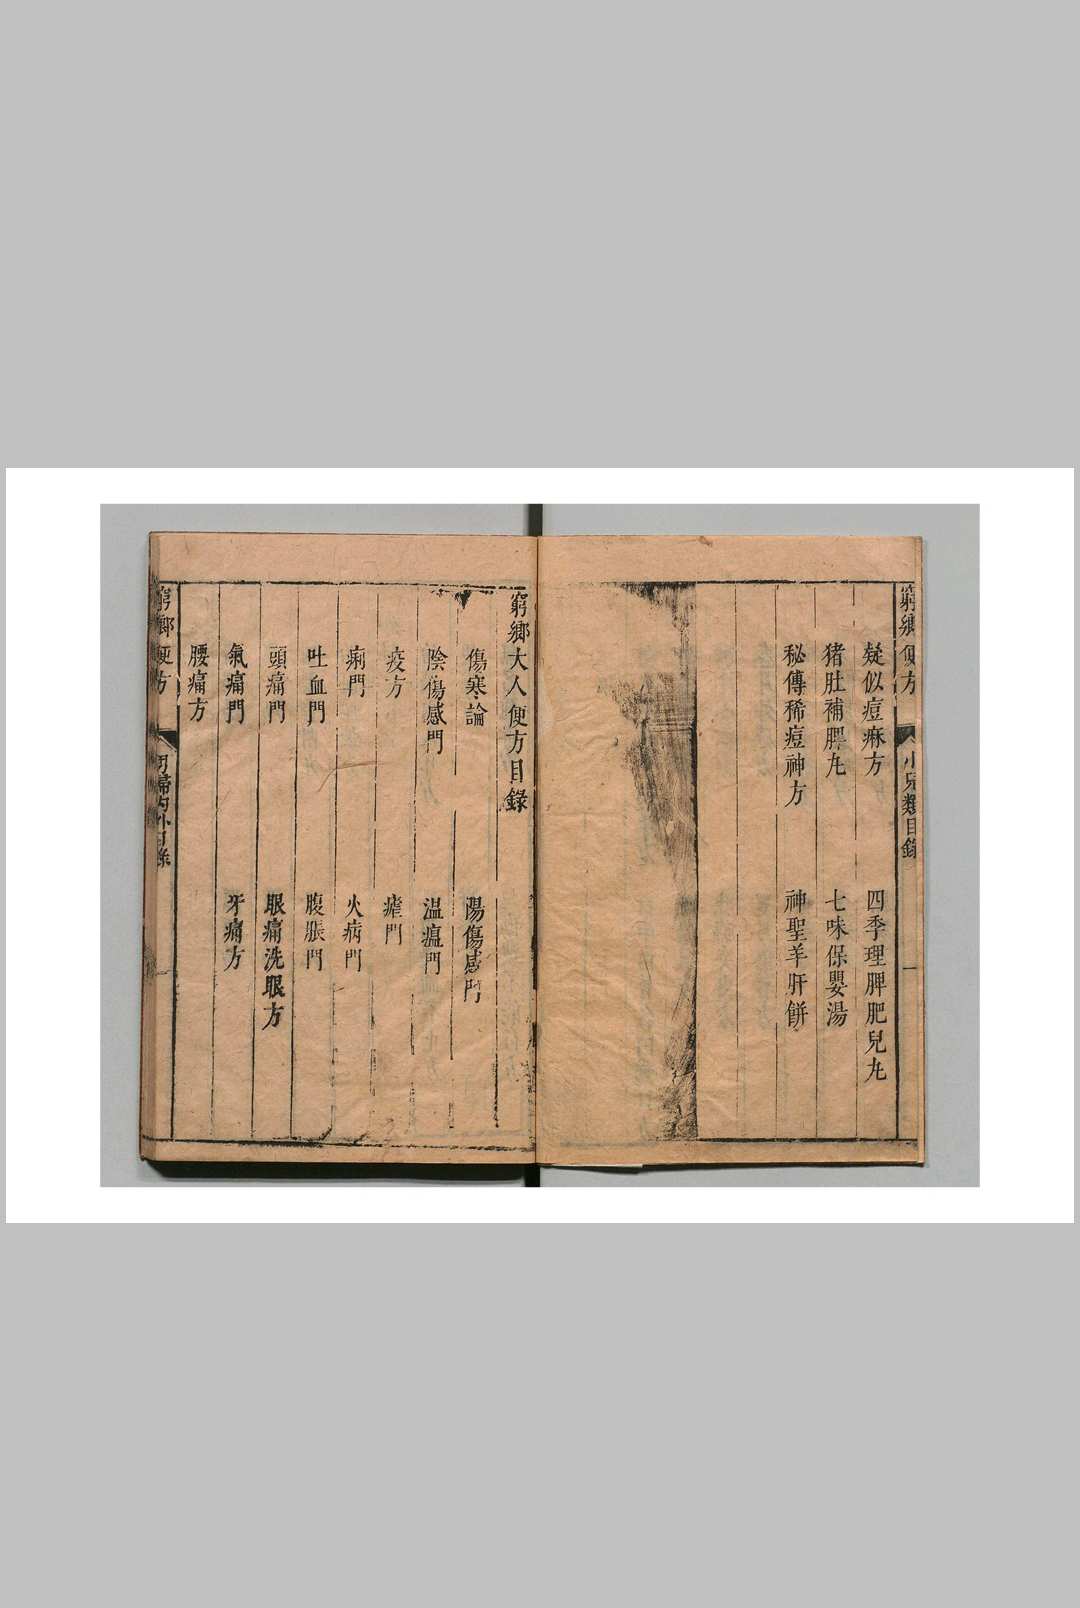 窮鄉便方
小兒類目錄
一
疑似痘痳方
四季理脾肥兒丸
猪肚補脾丸
七味保嬰湯
秘傳稀痘神方
神聖羊肝餅
窮鄉大人便方目錄
傷寒論
陽傷感門
陰傷感門
温瘟門
疫方
瘧門
痢門
火病門
吐血門
腹脹門
頭痛門
眼痛洗眼方
氣痛門
牙痛方
腰痛方
窮鄉便方
一